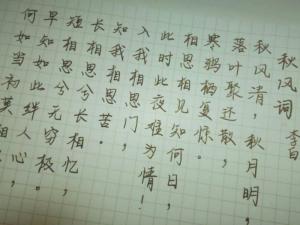 秋风词 李白
秋风清，秋月明，
落叶聚还散，
寒鸦栖复惊。
相思相见知何日，
此时此夜难为情！
入我相思门，
知我相思苦。
长相思兮长相忆，
短相思兮无穷极。
早知如此绊人心，
何如当初莫相